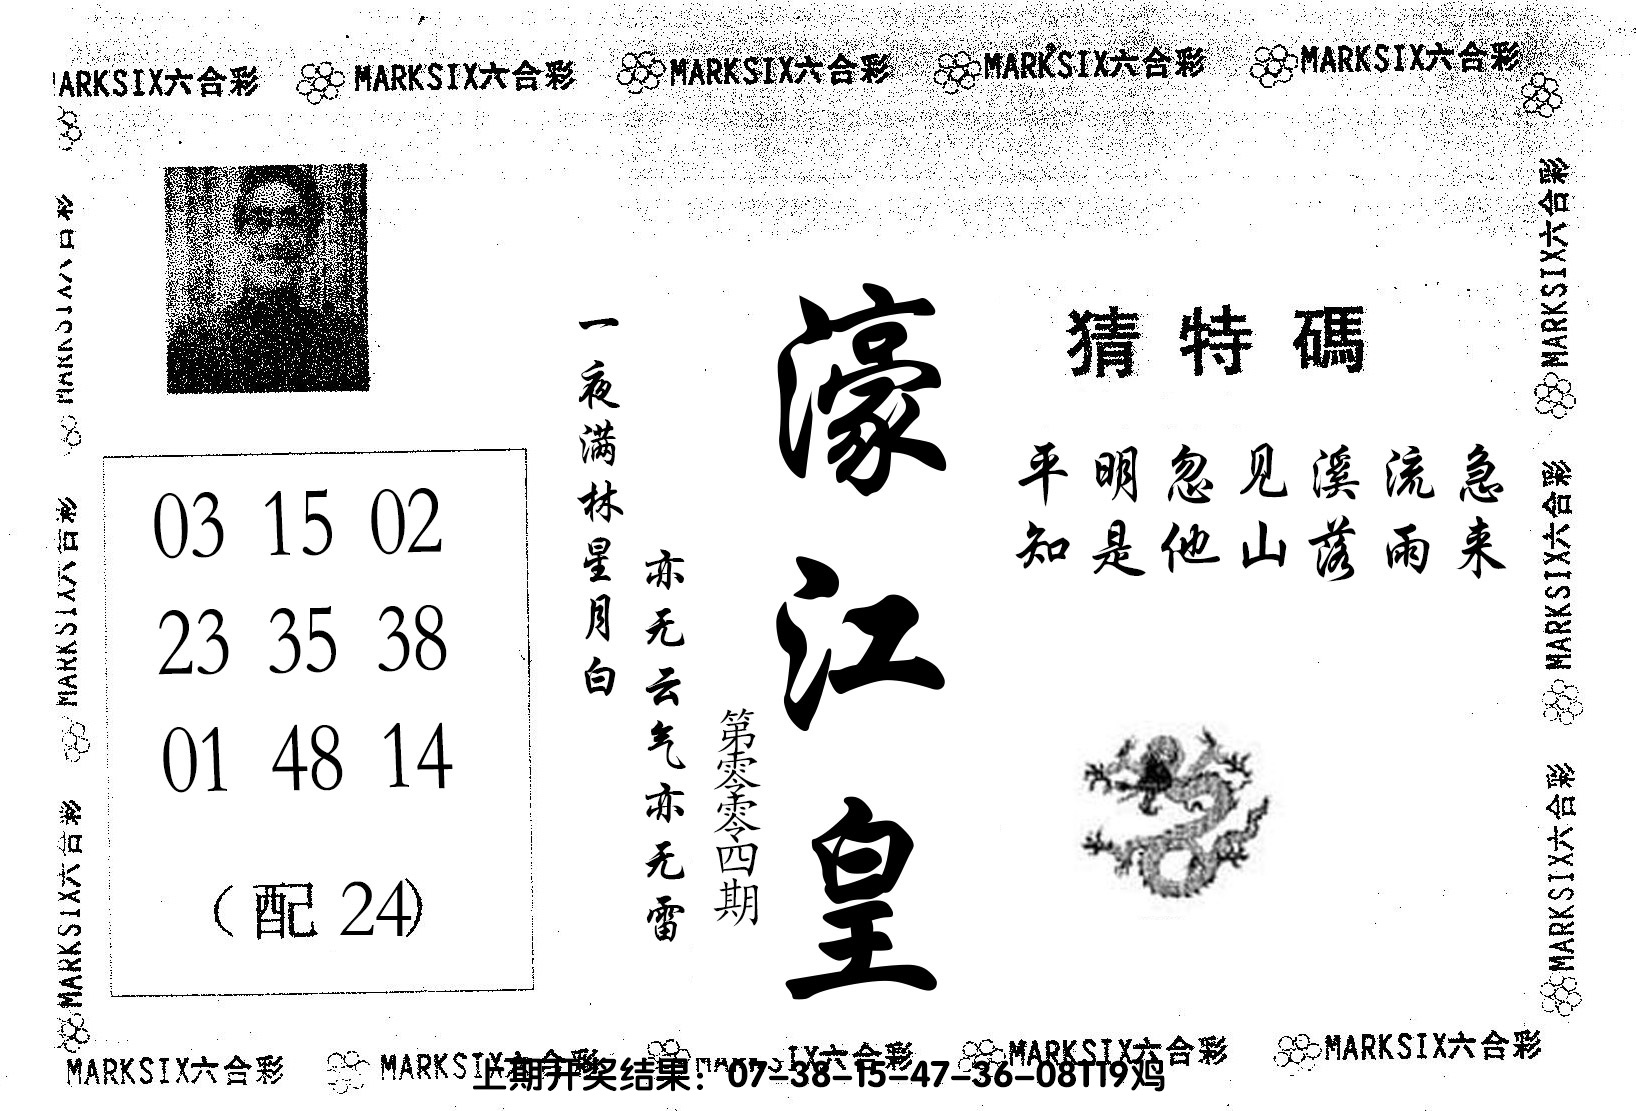 MARKSIX六合彩 MARKSIX六合彩 MARKSIX六合彩 MARKSIX六合彩
猜特碼
平明忽见溪流急
知是他山落雨来
濠江皇
第零零四期
一夜满林星月白
亦无云气亦无雷
03 15 02
23 35 38
01 48 14
（配 24）
MARKSIX六合彩
MARKSIX六合彩
MARKSIX六合彩
MARKSIX六合彩
MARKSIX六合彩
MARKSIX六合彩 MARKSIX六合彩 MARKSIX六合彩
上期开奖结果：07-38-15-47-36-08T19鸡